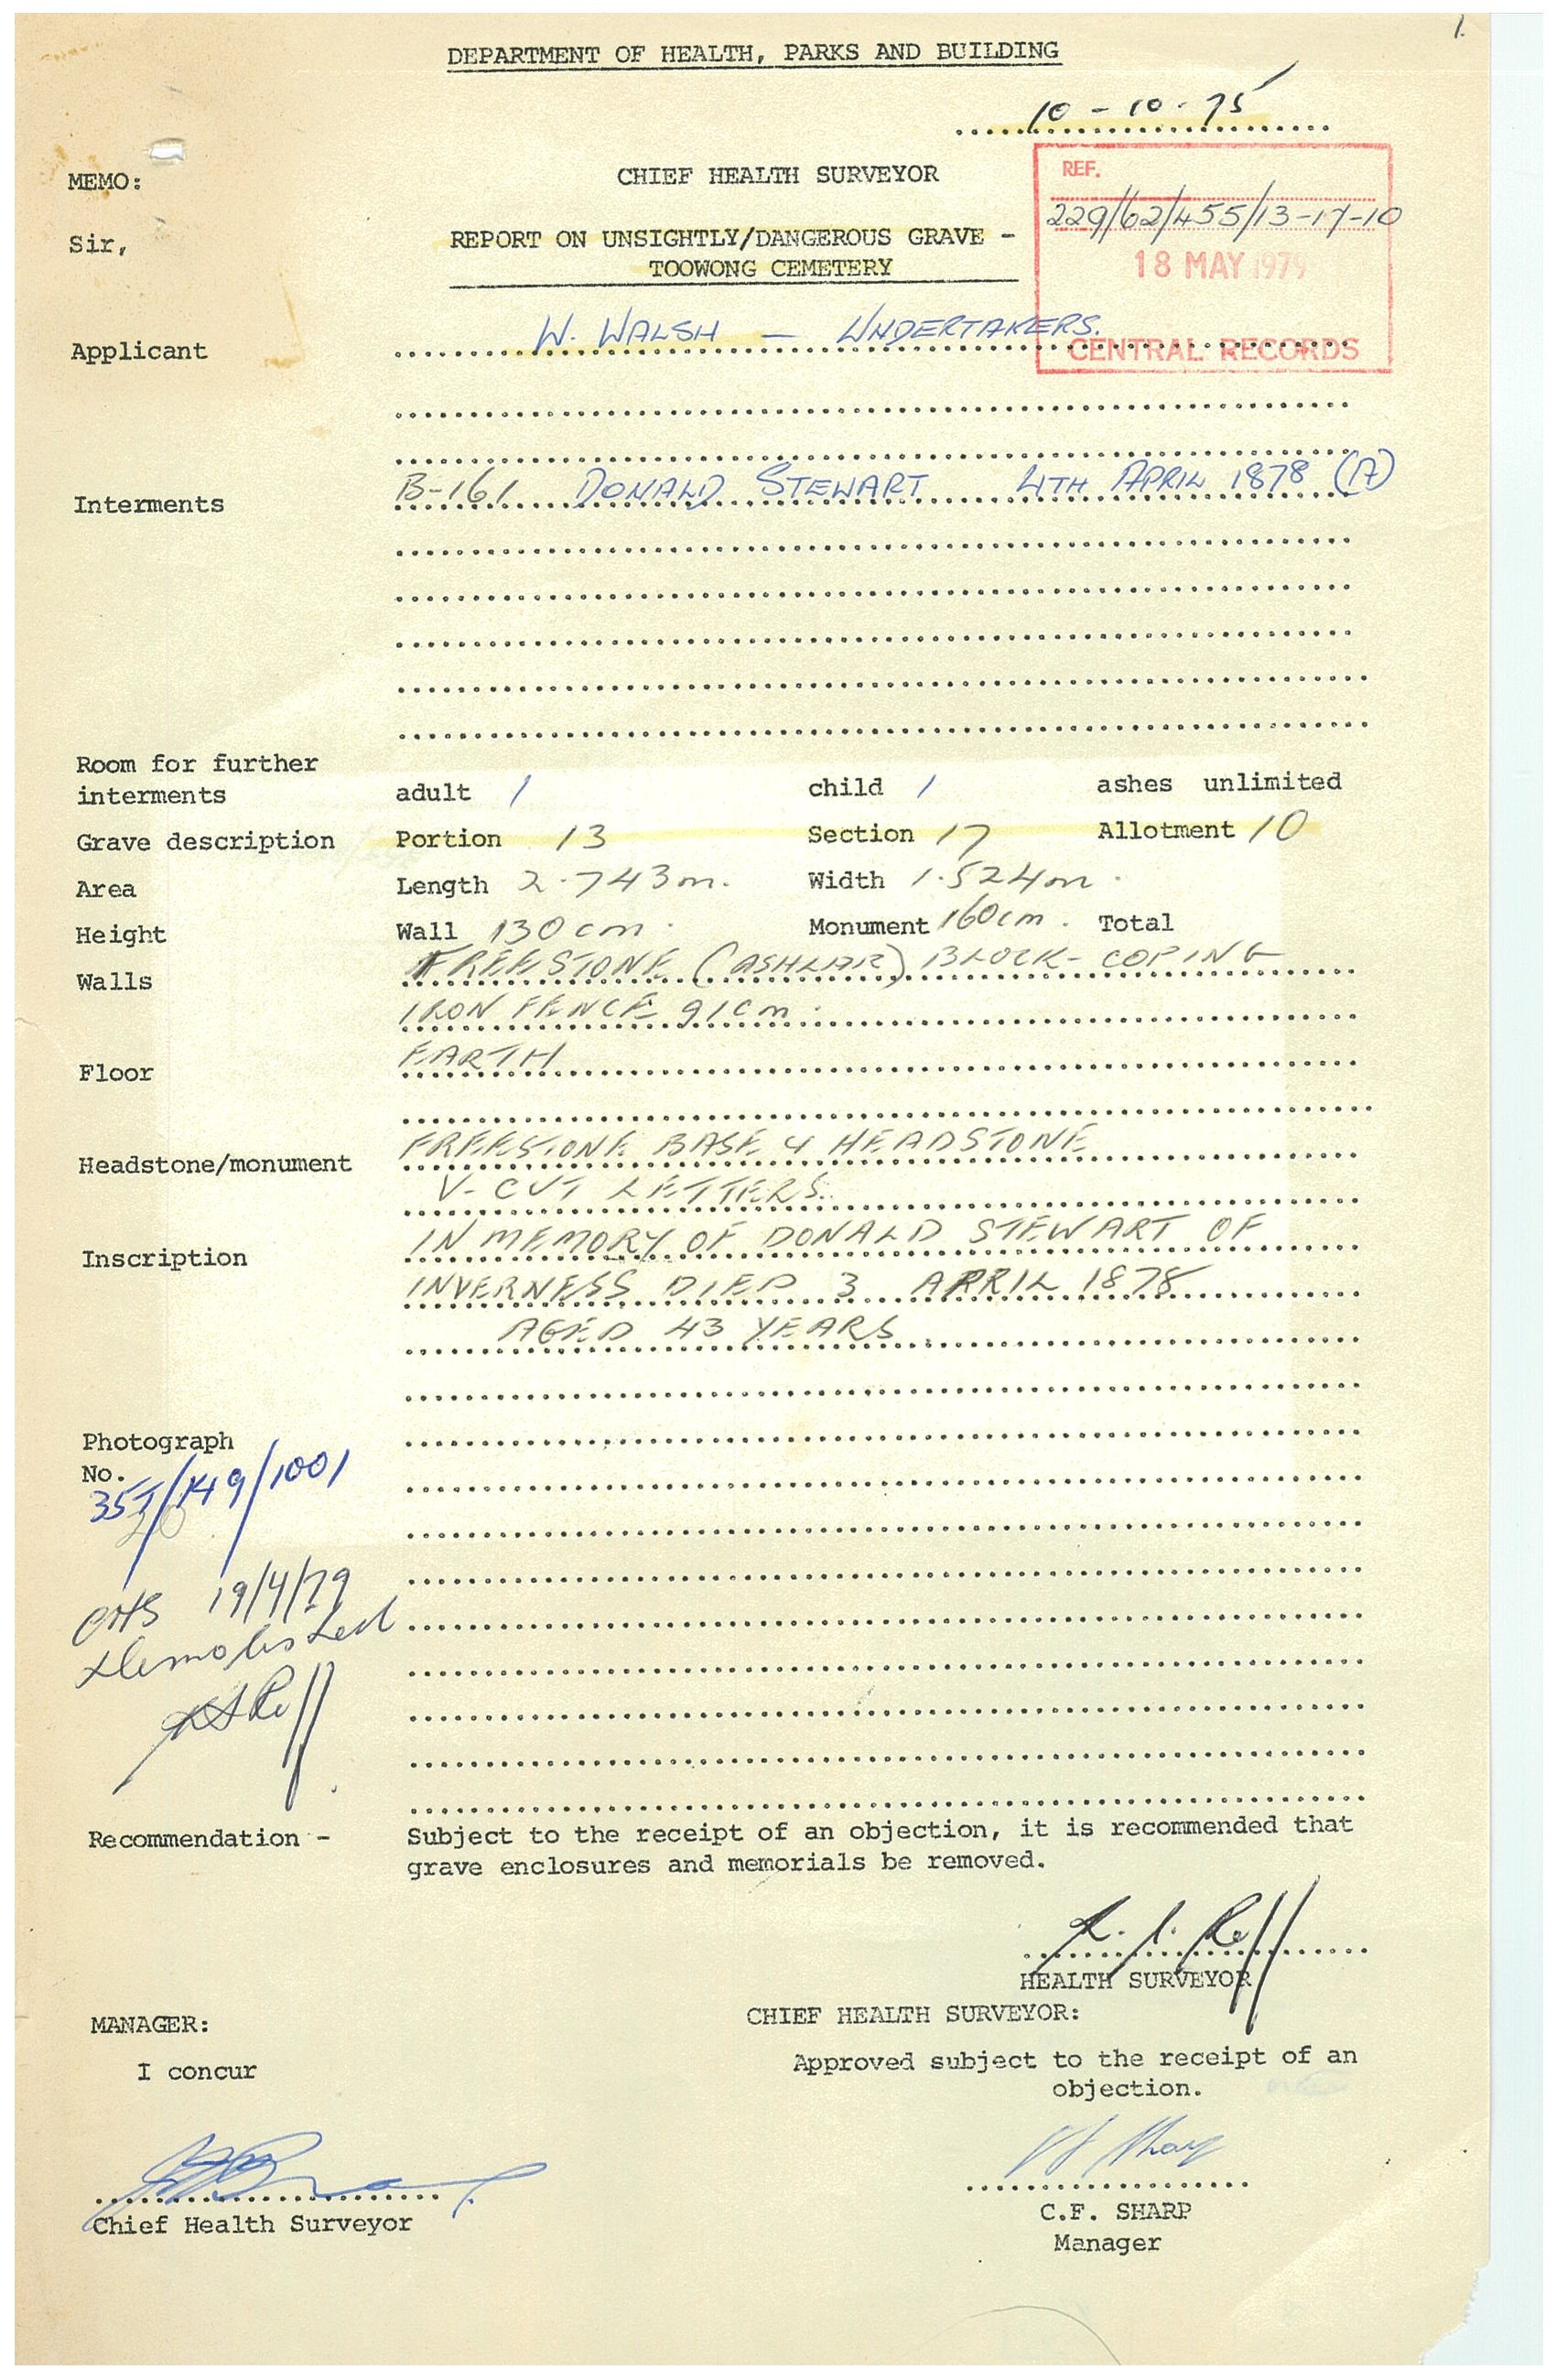 1.
DEPARTMENT OF HEALTH, PARKS AND BUILDING
10-10-75
MEMO:
CHIEF HEALTH SURVEYOR
REF.
229/62/455/13-17-10
Sir,
REPORT ON UNSIGHTLY/DANGEROUS GRAVE -
TOOWONG CEMETERY
18 MAY 1979
CENTRAL RECORDS
Applicant W. WALSH — UNDERTAKERS.
Interments B-161 DONALD STEWART 4TH APRIL 1878 (A)
Room for further
interments adult 1 child 1 ashes unlimited
Grave description Portion 13 Section 17 Allotment 10
Area Length 2.743m. Width 1.524m.
Height Wall 130cm. Monument 160cm. Total
Walls FREESTONE (ASHLAR) BLOCK-COPING
IRON FENCE 91cm.
Floor EARTH
Headstone/monument FREESTONE BASE & HEADSTONE
V-CUT LETTERS.
Inscription IN MEMORY OF DONALD STEWART OF
INVERNESS DIED 3 APRIL 1878
AGED 43 YEARS
Photograph
No.
/149/1001
CHS 19/4/79
Demolished
Recommendation - Subject to the receipt of an objection, it is recommended that
grave enclosures and memorials be removed.
HEALTH SURVEYOR
MANAGER:
CHIEF HEALTH SURVEYOR:
I concur
Approved subject to the receipt of an
objection.
Chief Health Surveyor
C.F. SHARP
Manager